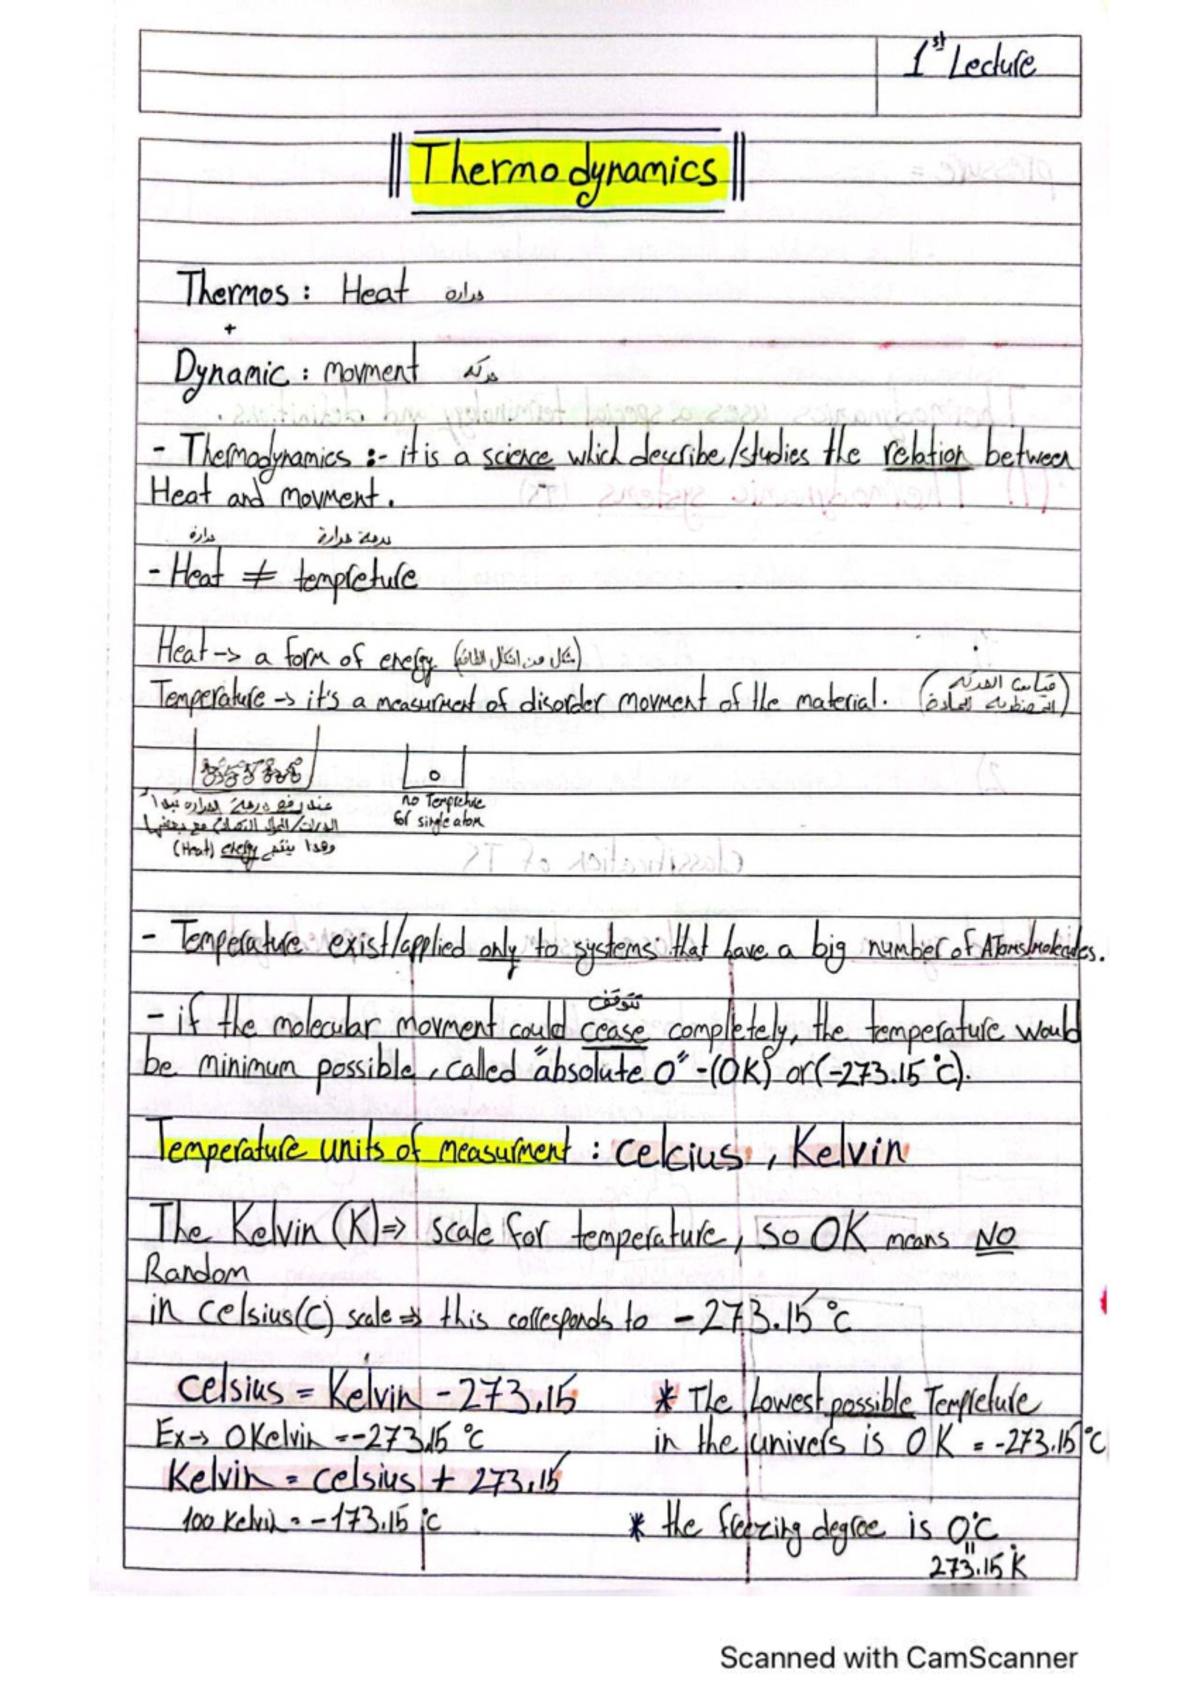 1st Lecture
Thermodynamics
Thermos : Heat حرارة
+
Dynamic : movment حركة
- Thermodynamics :- it is a science which describe/studies the relation between
Heat and movment.
حرارة درجة حرارة
- Heat ≠ tempreture
Heat -> a form of energy (شكل من اشكال الطاقة)
Temperature -> it's a measurment of disorder movment of the material. (قياس الحركة
العشوائية للمادة)
no Tempreture
for single atom
عند رفع درجة الحرارة تبدأ
مع بعضها
وهذا ينتج energy (Heat)
- Temperature exist/applied only to systems that have a big number of Atoms/molecules.
تتوقف
- if the molecular movment could cease completely, the temperature would
be minimum possible, called "absolute 0" -(0K) or (-273.15°c).
Temperature units of measurment : celcius , Kelvin
The Kelvin (K) => scale for temperature, so 0K means NO
Random
in celsius(C) scale => this corresponds to -273.15 °c
celsius = Kelvin - 273.15
* The Lowest possible Tempreture
Ex-> 0 Kelvin = -273.15 °c
in the univers is 0 K = -273.15°C
Kelvin = celsius + 273.15
100 Kelvin = -173.15 °c
* the freezing degree is 0°C
=
273.15 K
Scanned with CamScanner